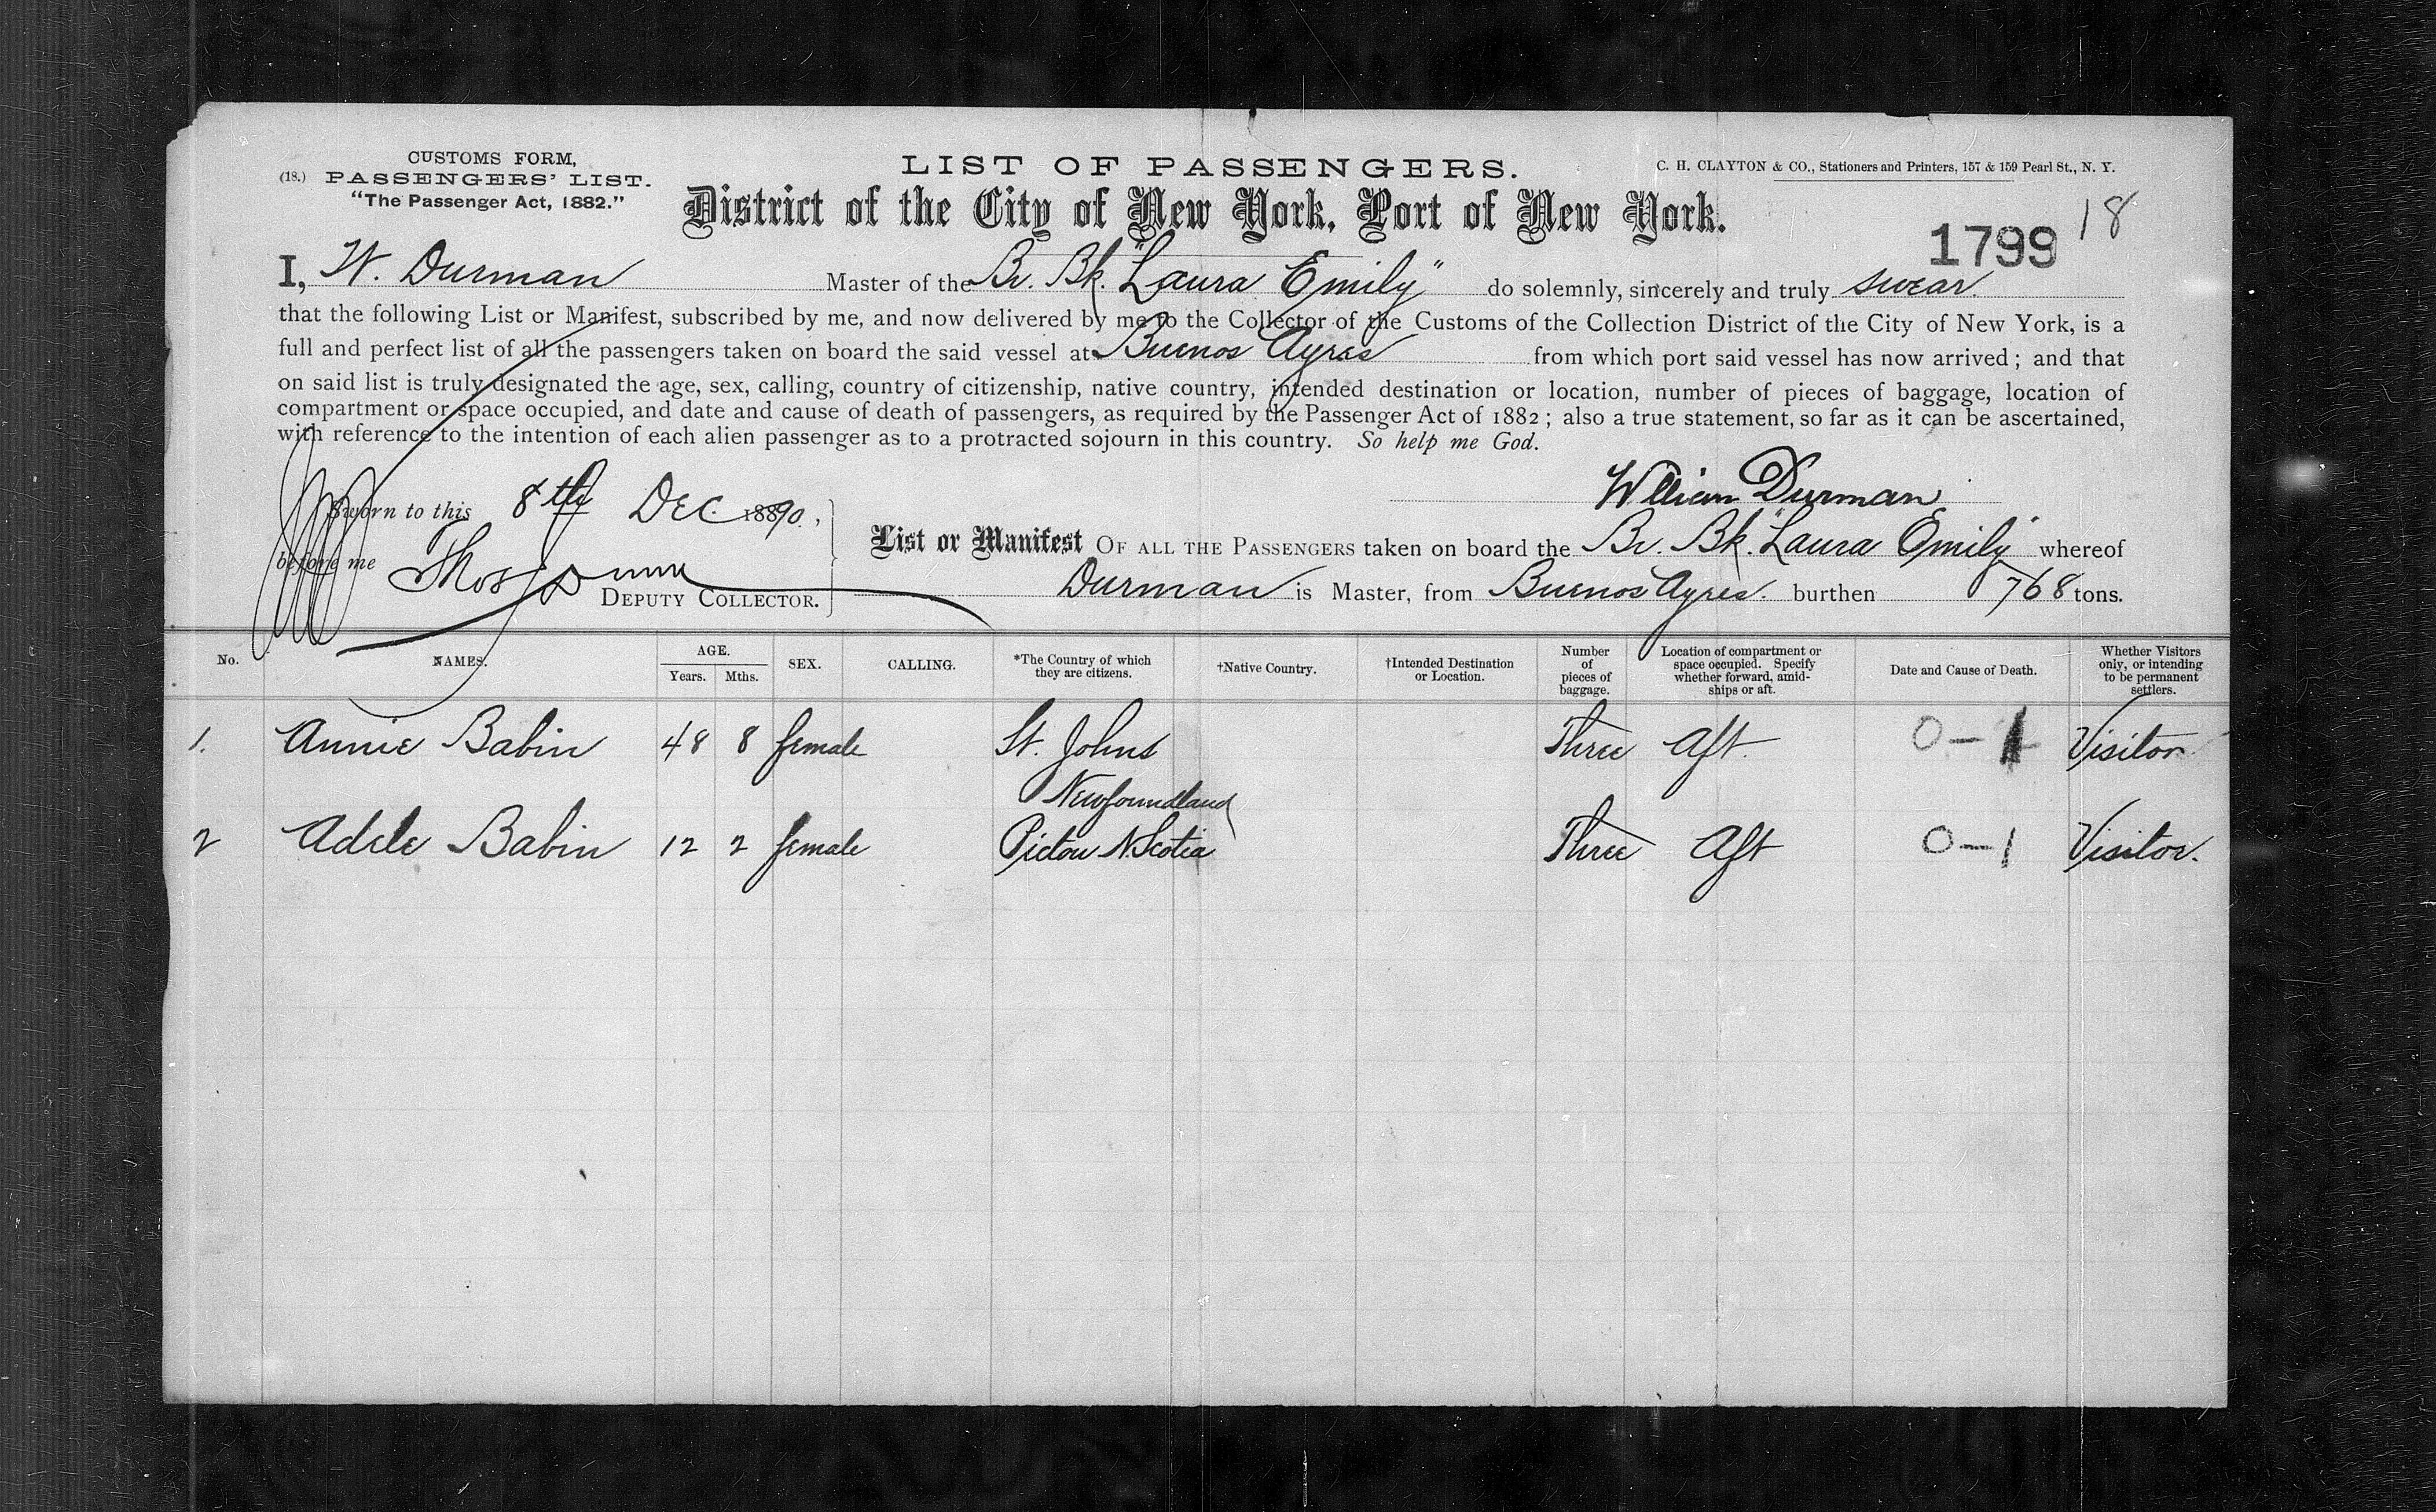 CUSTOMS FORM,
(18.) PASSENGERS' LIST.
"The Passenger Act, 1882."
LIST OF PASSENGERS.
C. H. CLAYTON & CO., Stationers and Printers, 157 & 159 Pearl St., N. Y.
District of the City of New York, Port of New York.
1799 18
I, W. Durman Master of the Br. Bk. "Laura Emily" do solemnly, sincerely and truly swear.
that the following List or Manifest, subscribed by me, and now delivered by me to the Collector of the Customs of the Collection District of the City of New York, is a
full and perfect list of all the passengers taken on board the said vessel at Buenos Ayres from which port said vessel has now arrived; and that
on said list is truly designated the age, sex, calling, country of citizenship, native country, intended destination or location, number of pieces of baggage, location of
compartment or space occupied, and date and cause of death of passengers, as required by the Passenger Act of 1882; also a true statement, so far as it can be ascertained,
with reference to the intention of each alien passenger as to a protracted sojourn in this country. So help me God.
William Durman
Sworn to this 8th Dec. 1890,
before me Thos Dunn
DEPUTY COLLECTOR.
List or Manifest OF ALL THE PASSENGERS taken on board the Br. Bk. "Laura Emily" whereof
Durman is Master, from Buenos Ayres. burthen 768 tons.
No. NAMES. AGE. Years. Mths. SEX. CALLING. *The Country of which they are citizens. †Native Country. †Intended Destination or Location. Number of pieces of baggage. Location of compartment or space occupied. Specify whether forward, amidships or aft. Date and Cause of Death. Whether Visitors only, or intending to be permanent settlers.
1. Annie Babin 48 8 female St. Johns Three Aft. 0-1 Visitor
Newfoundland
2 Adele Babin 12 2 female Pictou N. Scotia Three Aft 0-1 Visitor.